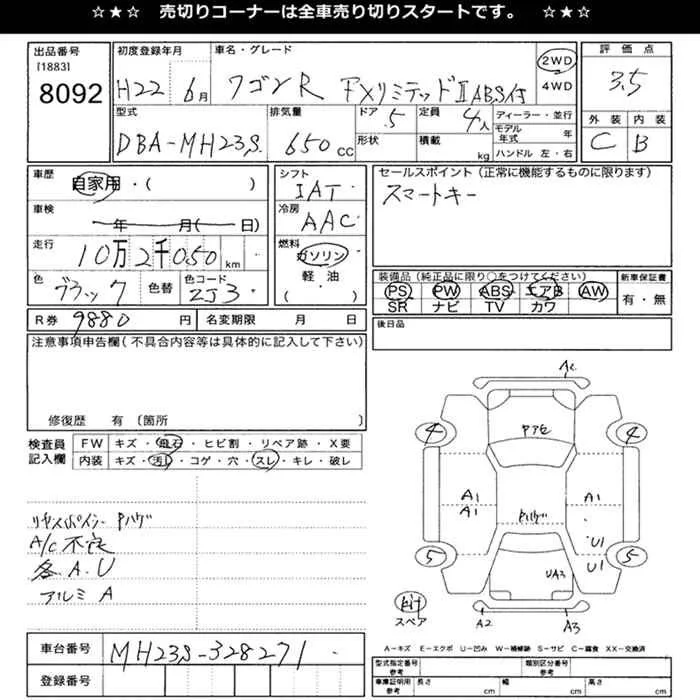 ☆★☆ 売切りコーナーは全車売り切りスタートです。 ☆★☆
出品番号
[1883]
8092
初度登録年月
H22 6月
車名・グレード
ワゴンR FXリミテッドⅡ ABS付
2WD
4WD
評価点
3.5
型式
DBA-MH23S
排気量
650 CC
ドア
5
形状
定員
4人
積載
kg
ディーラー・並行
モデル年式 年
ハンドル 左・右
外装 内装
C B
車歴
自家用・( )
車検
年 月( 日)
走行
10万2千050 km
色
ブラック
色替
色コード
ZJ3
シフト
IAT
冷房
AAC
燃料
ガソリン
軽・油
( )
セールスポイント(正常に機能するものに限ります)
スマートキー
装備品(純正品に限り○をつけてください)
PS PW ABS エアB AW
SR ナビ TV カワ
新車保証書
有・無
R券 9880 円
名変期限 月 日
後日品
注意事項申告欄(不具合内容等は具体的に記入して下さい)
修復歴 有 〔箇所
検査員記入欄
FW キズ・飛石・ヒビ割・リペア跡・X要
内装 キズ・汚レ・コゲ・穴・スレ・キレ・破レ
Pハゲ
A/C不良
各A.U
アルミA
A2
4 4
A1 A1
A1
Pハゲ
U1
5 U1 5
UA3
スペア
A2 A3
A-キズ E-エクボ U-凹み W-補修跡 S-サビ C-腐食 XX-交換済
車台番号 MH23S-328271
登録番号
型式指定番号 参考
類別区分番号 参考
車庫証明用 参考 長さ cm 幅 cm 高さ cm